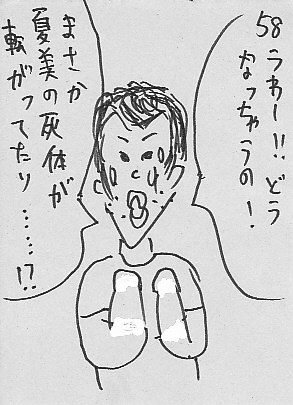 58 うわー!!どう
なっちゃうの!
まさか
夏美の死体が
転がってたり……!?